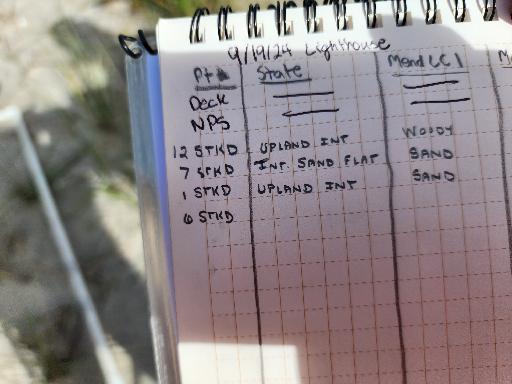 9/19/24 Lighthouse
Pt State Mend LC 1
Deck
NPS
12 STKD UPLAND INT WOODY
7 STKD INT. SAND FLAT SAND
1 STKD UPLAND INT SAND
6 STKD